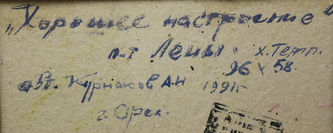 „Хорошее настроение"
п-т Лены. х. темп.
96 х 58.
авт. Курнаков А.Н 1991г.
г. Орел.